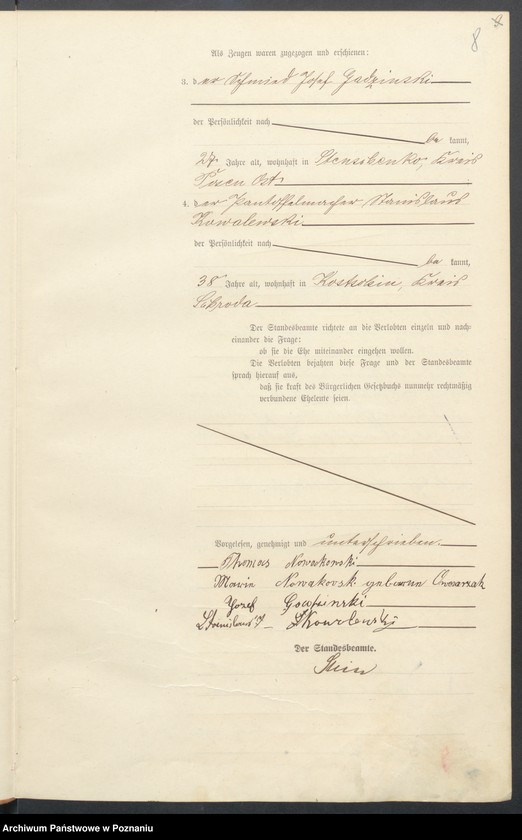 8
Als Zeugen waren zugezogen und erschienen:
3. der Schmied Josef Gadzinski
der Persönlichkeit nach
be kannt,
27 Jahre alt, wohnhaft in Kreis
Posen Ost
4. der Pantoffelmacher Stanislaus
Kowalewski
der Persönlichkeit nach
be kannt,
38 Jahre alt, wohnhaft in Kostschin, Kreis
Schroda
Der Standesbeamte richtete an die Verlobten einzeln und nach-
einander die Frage:
ob sie die Ehe miteinander eingehen wollen.
Die Verlobten bejahten diese Frage und der Standesbeamte
sprach hierauf aus,
daß sie kraft des Bürgerlichen Gesetzbuchs nunmehr rechtmäßig
verbundene Eheleute seien.
Vorgelesen, genehmigt und unterschrieben.
Thomas Nowakowski
Maria geborene
Józef
Der Standesbeamte.
Archiwum Państwowe w Poznaniu